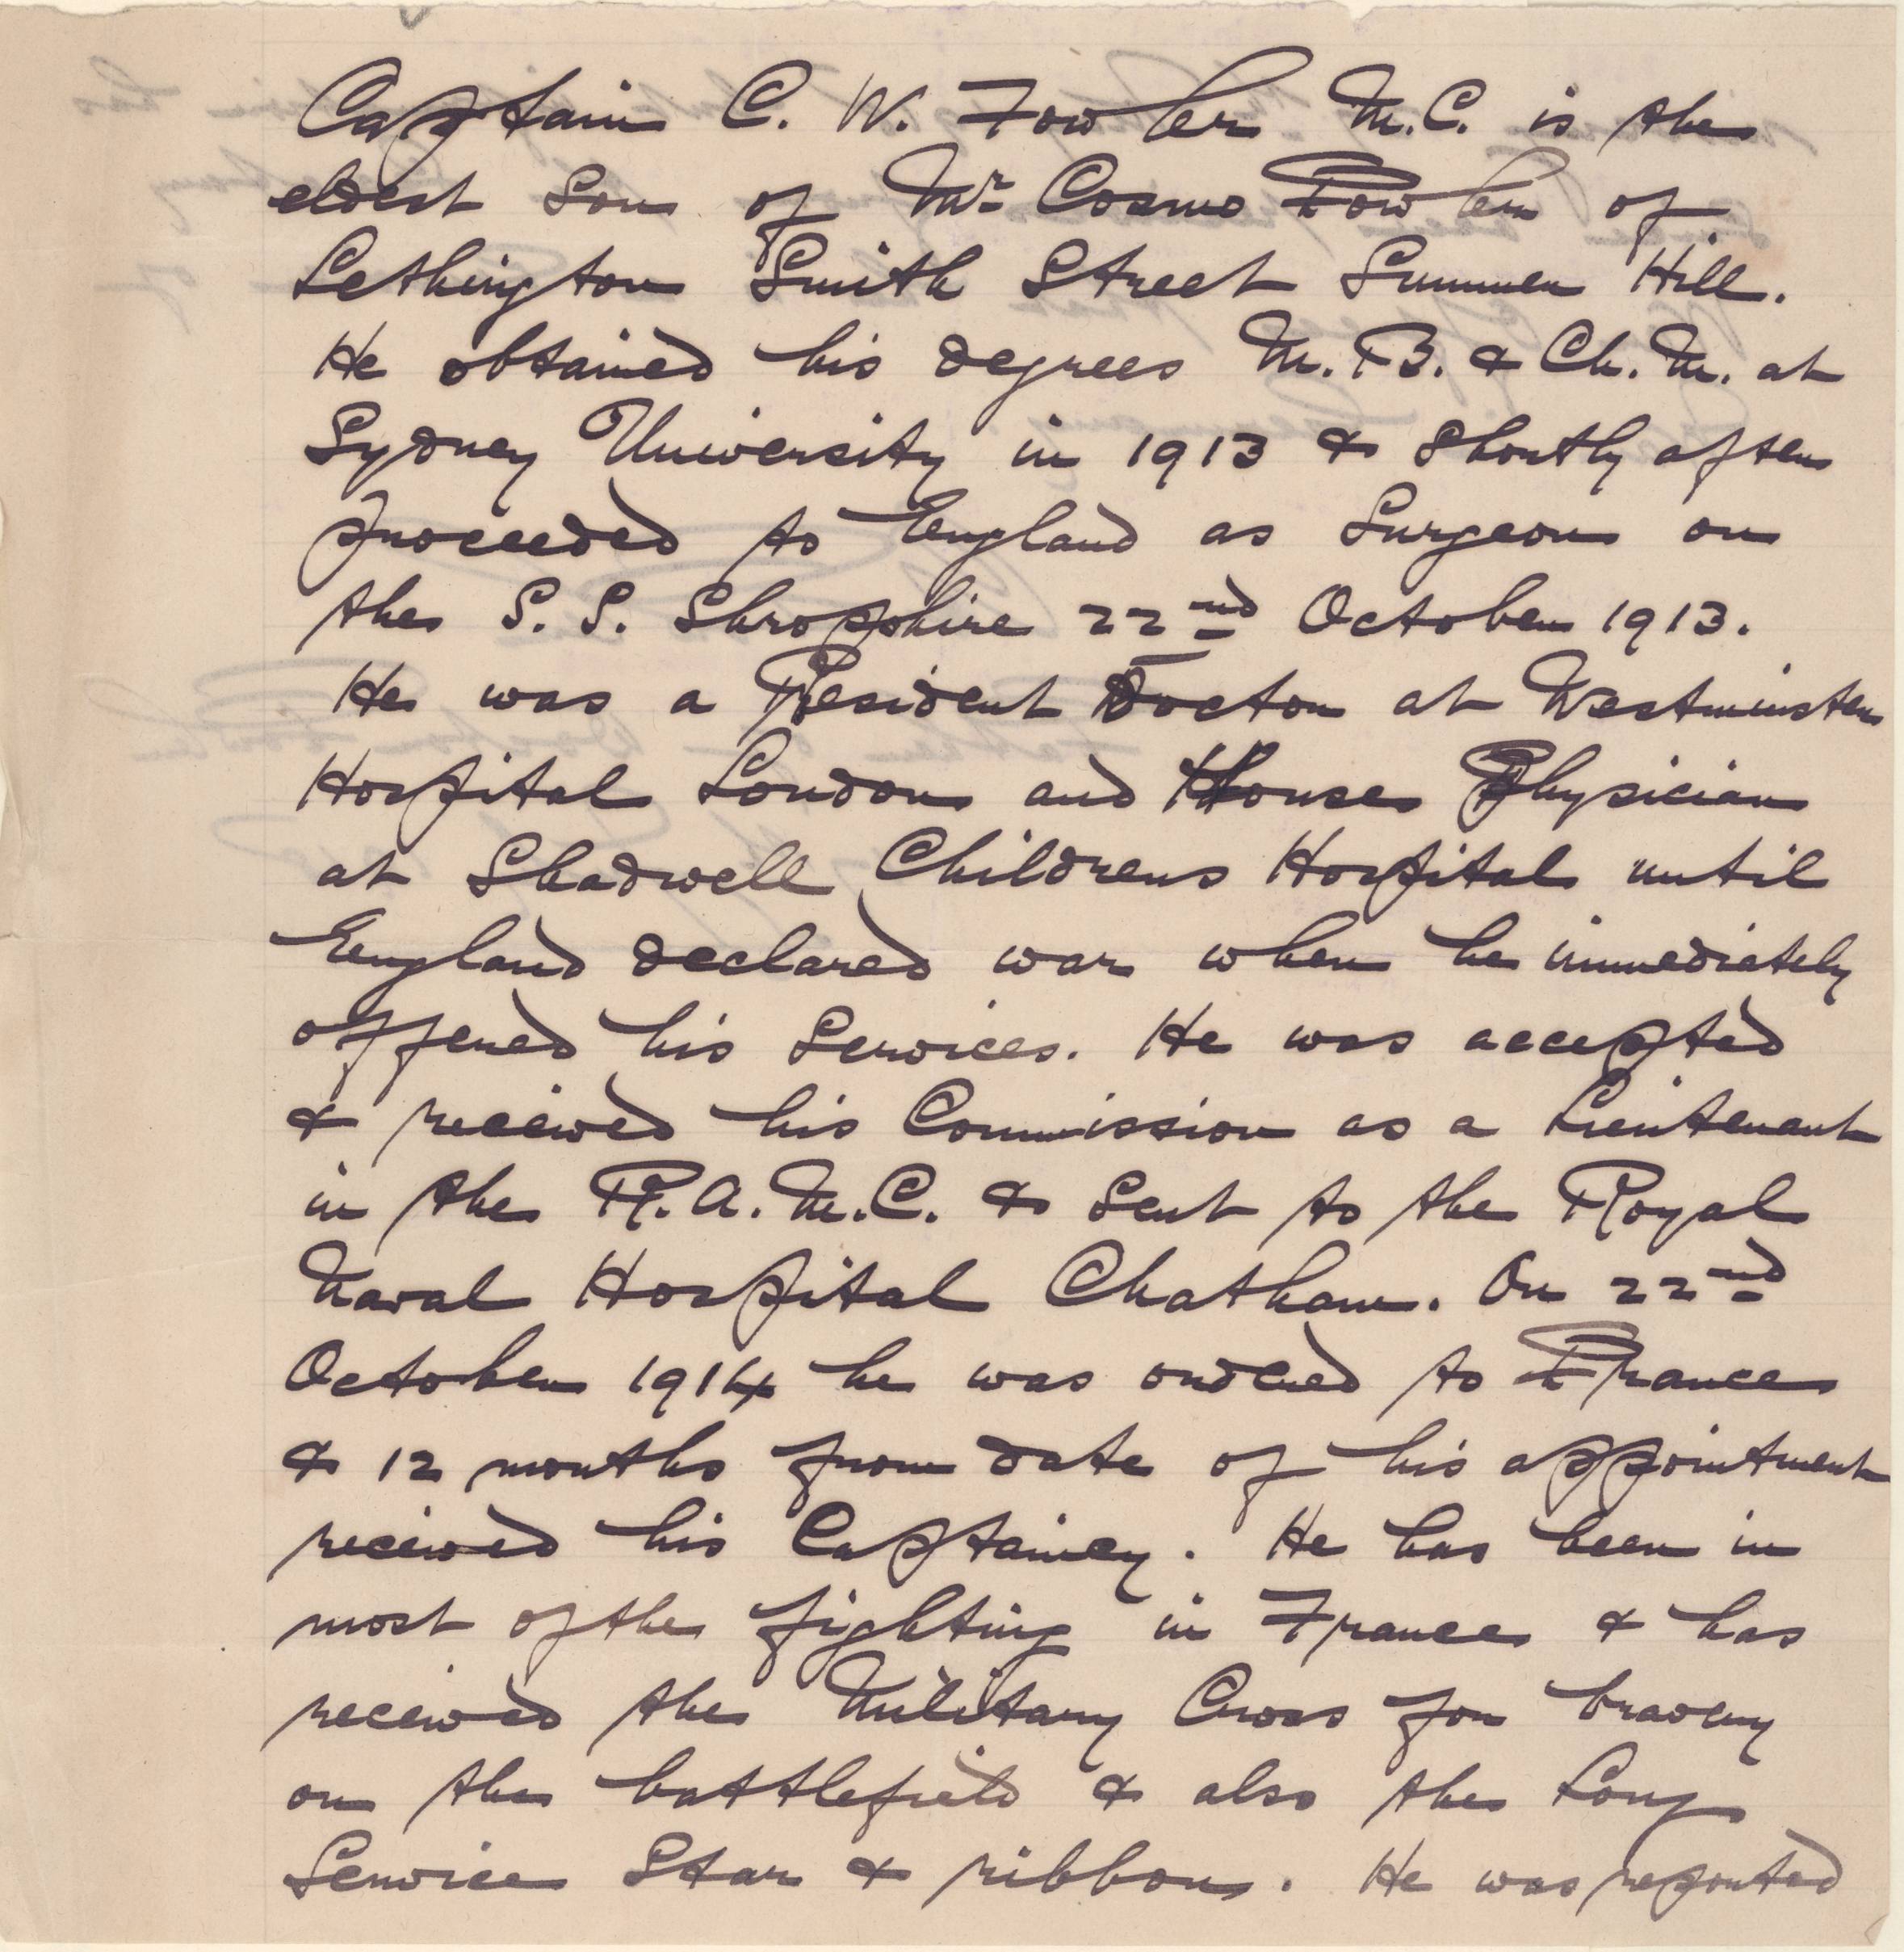 Captain C. W. Fowler M.C. is the
eldest Son of Mr Cosmo Fowler of
Lethington Smith Street Summer Hill.
He obtained his degrees M.B. & Ch.M. at
Sydney University in 1913 & Shortly after
proceeded to England as Surgeon on
the S.S. Shropshire 22nd October 1913.
He was a Resident Doctor at Westminster
Hospital London and House Physician
at Shadwell Childrens Hospital until
England declared war when he immediately
offered his Services. He was accepted
& received his Commission as a Lieutenant
in the R.A.M.C. & Sent to the Royal
Naval Hospital Chatham. On 22nd
October 1914 he was ordered to France
& 12 months from date of his appointment
received his Captaincy. He has been in
most of the fighting in France & has
received the Military Cross for bravery
on the battlefield & also the Long
Service Star & ribbon. He was reported